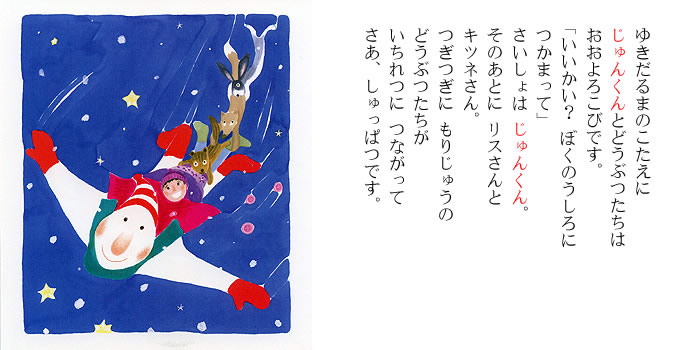 ゆきだるまのこたえに
じゅんくんとどうぶつたちは
おおよろこびです。
「いいかい? ぼくのうしろに
つかまって」
さいしょは じゅんくん。
そのあとに リスさんと
キツネさん。
つぎつぎに もりじゅうの
どうぶつたちが
いちれつに つながって
さあ、しゅっぱつです。